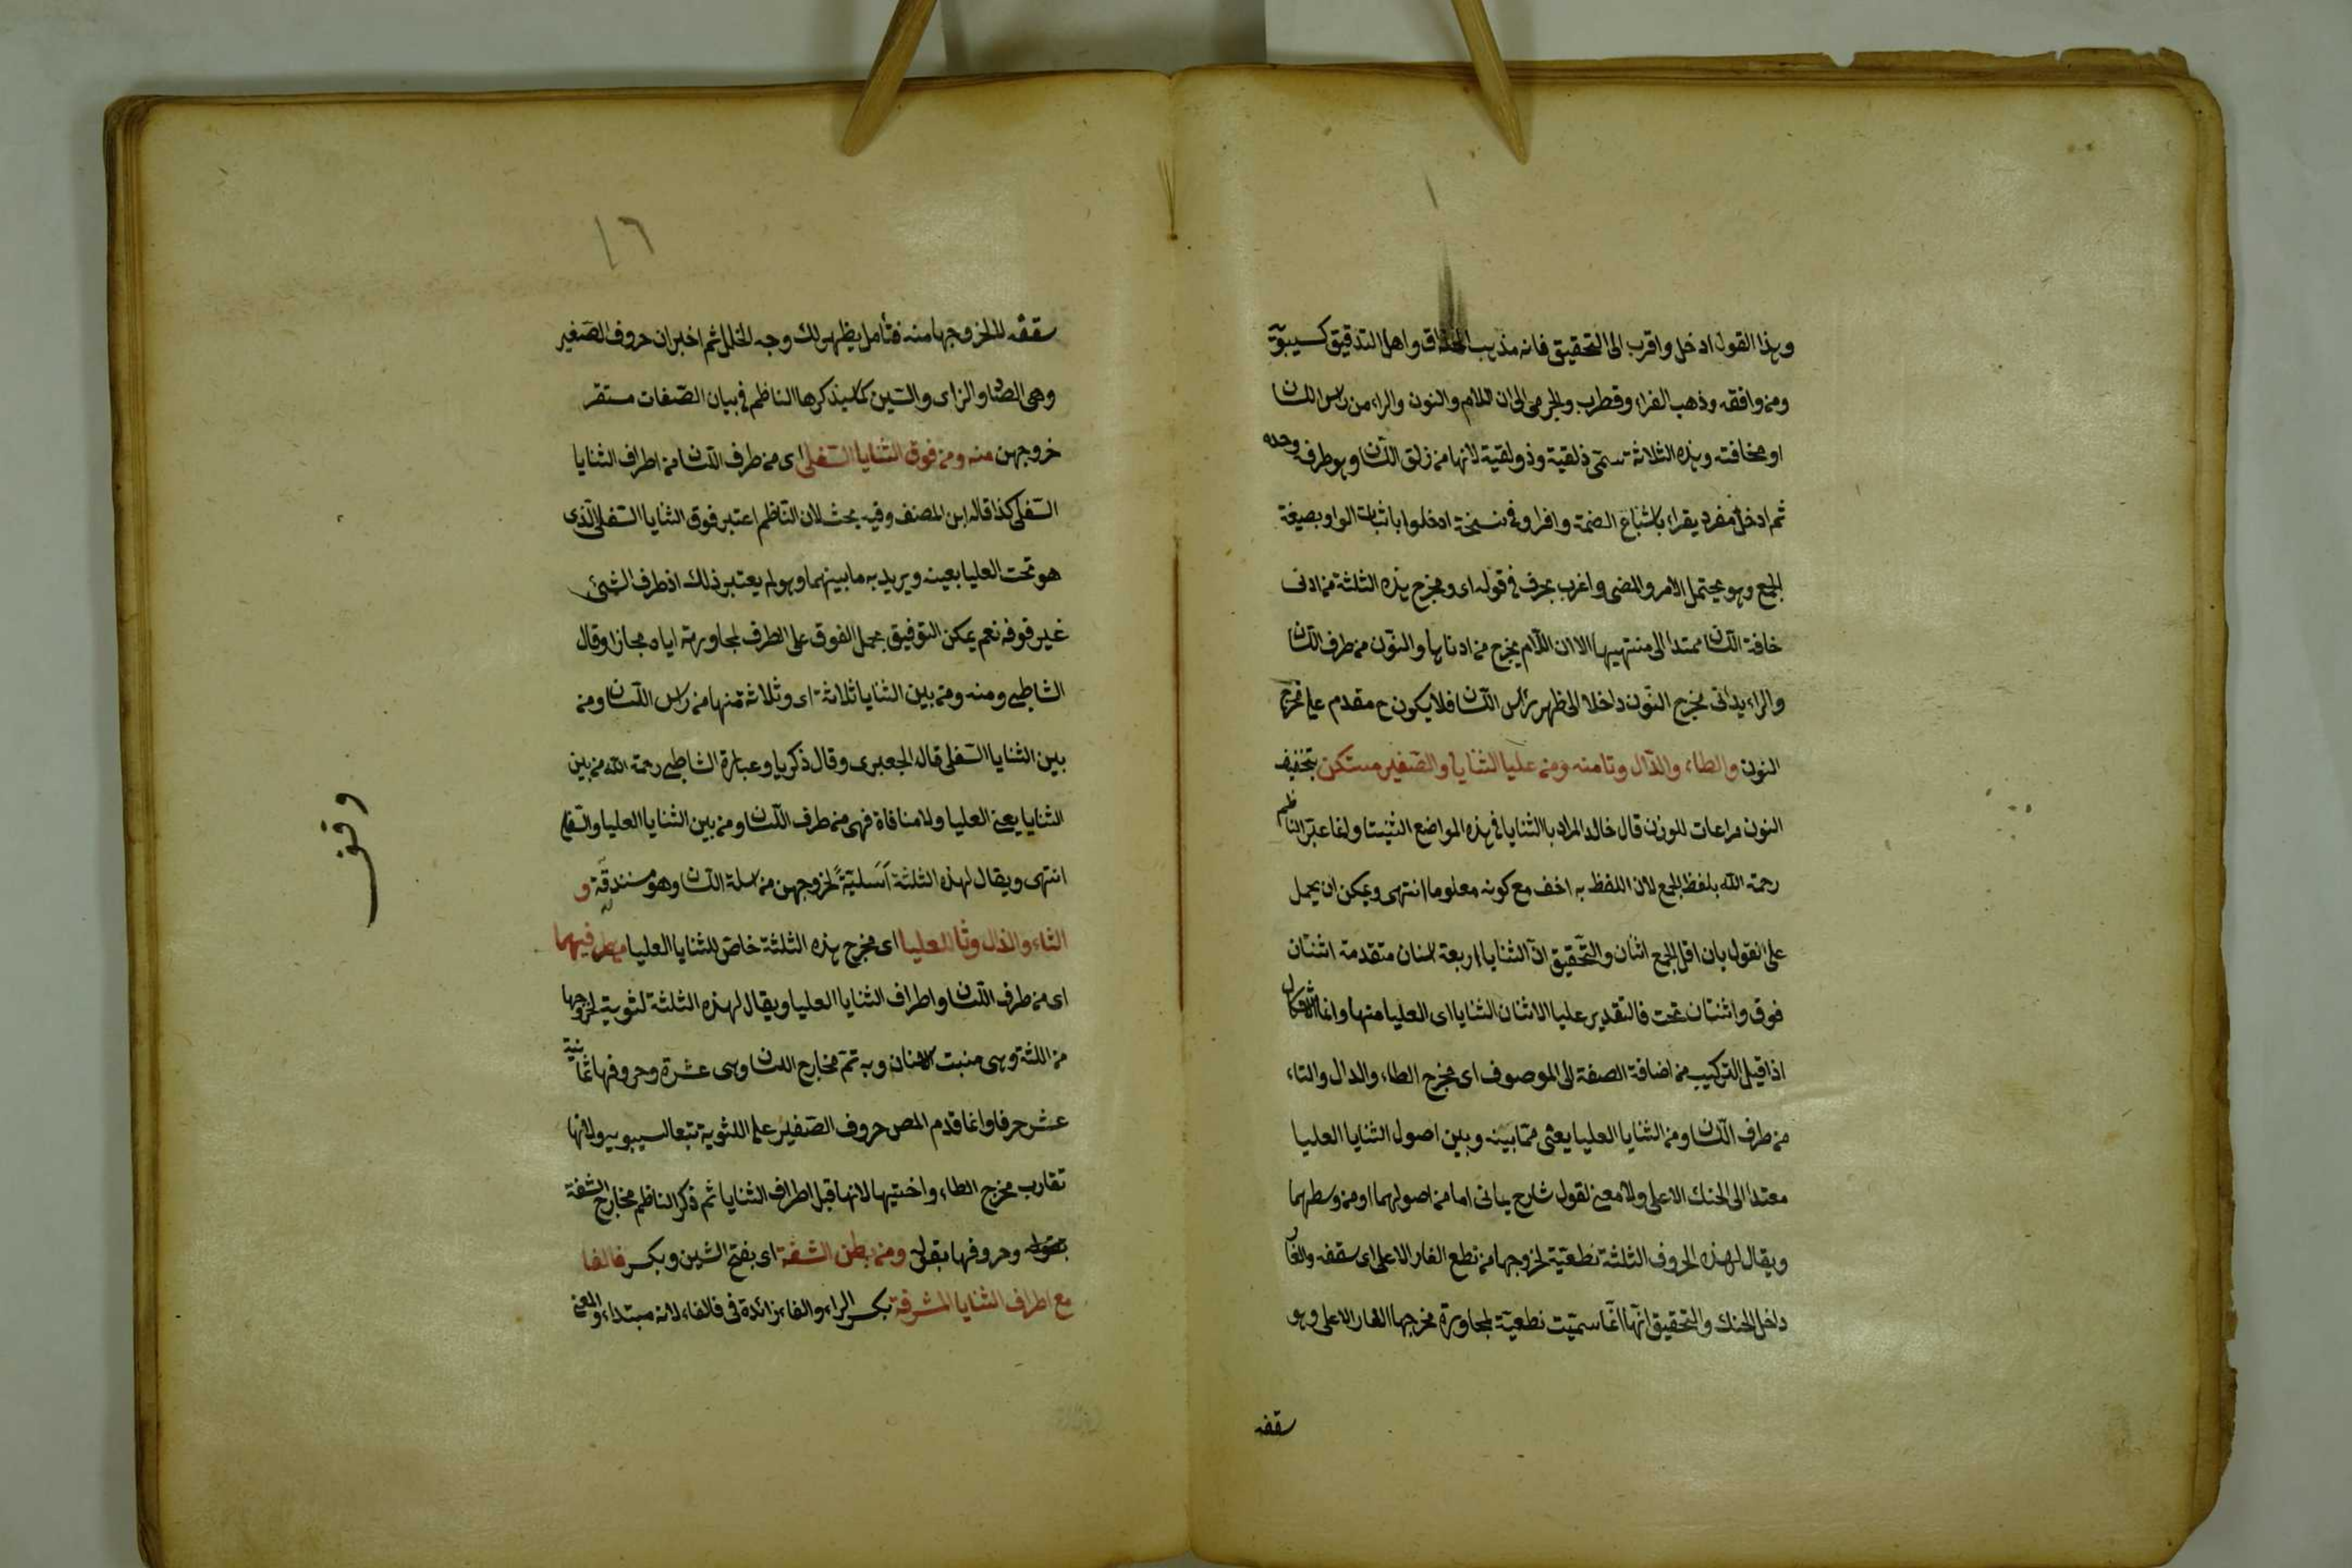 وبهذا القول ادخل واقرب الى التحقيق فانه مذهب الحذاق واهل التدقيق كسيبويه
ومن وافقه وذهب الفراء وقطرب والجرمى الى ان اللام والنون والراء من راس اللسان
او مخافته وهذه الثلاثة تسمى ذلقية وذولقية لانها من زلق اللسان وهو طرفه وحده
ثم ادخل مفرد يقراء باشباع الضمة وافراو فى نسخة ادخلوا باثبات الواو بصيغة
الجمع وهو يحتمل الامر والمضى واغرب بحرف فى قوله اى ومخرج هذه الثلثة من ادنى
خافة اللسان ممتدا الى منتهيها الا ان اللام يخرج من ادناها والنون من طرف اللسان
والراء يدانى مخرج النون داخلا الى ظهر راس اللسان فلا يكون ح مقدم على مخرج
النون والطاء والدال وتا منه ومن عليا الثنايا والصفير مستكن بتخفيف
النون مراعات للوزن قال خالد المراد باالثنايا فى هذه المواضع الثنيتا وانما عبر الناظم
رحمة الله بلفظ الجمع لان اللفظ به اخف مع كونه معلوما انتهى ويمكن ان يحمل
على القول بان اقل الجمع اثنان والتحقيق ان الثنايا اربعة اسنان متقدمة اثنتان
فوق واثنتان تحت فالتقدير عليا الاثنان الثنايا اى العليا منها وانما الاشكال
اذا قيل التركيب من اضافة الصفة الى الموصوف اى مخرج الطاء والدال والتاء
من طرف اللسان ومن الثنايا العليا يعنى مما بينه وبين اصول الثنايا العليا
معتدا الى الحنك الاعلى ولا معنى لقول شارح يمانى اما من اصولهما او من وسطهما
ويقال لهذه الحروف الثلثة نطعية لخروجها من نطع الغار الاعلى اى سقفه والغار
داخل الحنك والتحقيق انها انما سميت نطعية لمجاورة مخرجها الغار الاعلى وهو
سقفه
١٦
سقفه لا لخروجها منه فتأمل يظهر لك وجه الخلل ثم اخبر ان حروف الصفير
وهى الصاد والزاى والسين كما سيذكرها الناظم فى بيان الصفات مستقر
خروجهن منه ومن فوق الثنايا السفلى اى من طرف اللسان من اطراف الثنايا
السفلى كذا قاله ابن المصنف وفيه بحث لان الناظم اعتبر فوق الثنايا السفلى الذى
هو تحت العليا بعينه ويريد به ما بينهما وهو لم يعتبر ذلك اذ طرف الشئ
غير فوقه نعم يمكن التوفيق بحمل الفوق على الطرف لمجاورته اياه مجازا وقال
الشاطبى ومنه ومن بين الثنايا ثلاثة اى وثلاثة منها من راس اللسان ومن
بين الثنايا السفلى قال الجعبرى وقال ذكريا وعبارة الشاطبى رحمة الله من بين
الثنايا يعنى العليا ولا منافاة فهى من طرف اللسان ومن بين الثنايا العليا والسفلى
انتهى ويقال لهذه الثلثة اسلية لخروجهن من اسلة اللسان وهو مستدقة و
الثاء والذال وثا للعليا اى مخرج هذه الثلثة خاص للثنايا العليا من طرفيهما
اى من طرف اللسان واطراف الثنايا العليا ويقال لهذه الثلثة لثوية لخروجها
من اللثة وهى منبت الاسنان وبه تم مخارج اللسان وهى عشرة وحروفها ثمانية
عشر حرفا وانما قدم المص حروف الصفير على اللثوية تبعا لسيبويه ولانها
تقارب مخرج الطاء واختيها لانها قبل اطراف الثنايا ثم ذكر الناظم مخارج الشفة
بقوله وحروفها بقوله ومن بطن الشفة اى بفتح الشين وبكسر فالفا
مع اطراف الثنايا المشرفة بكسر الراء والفاء زائدة فى فالفاء لانه مبتداء والمعنى
وقف